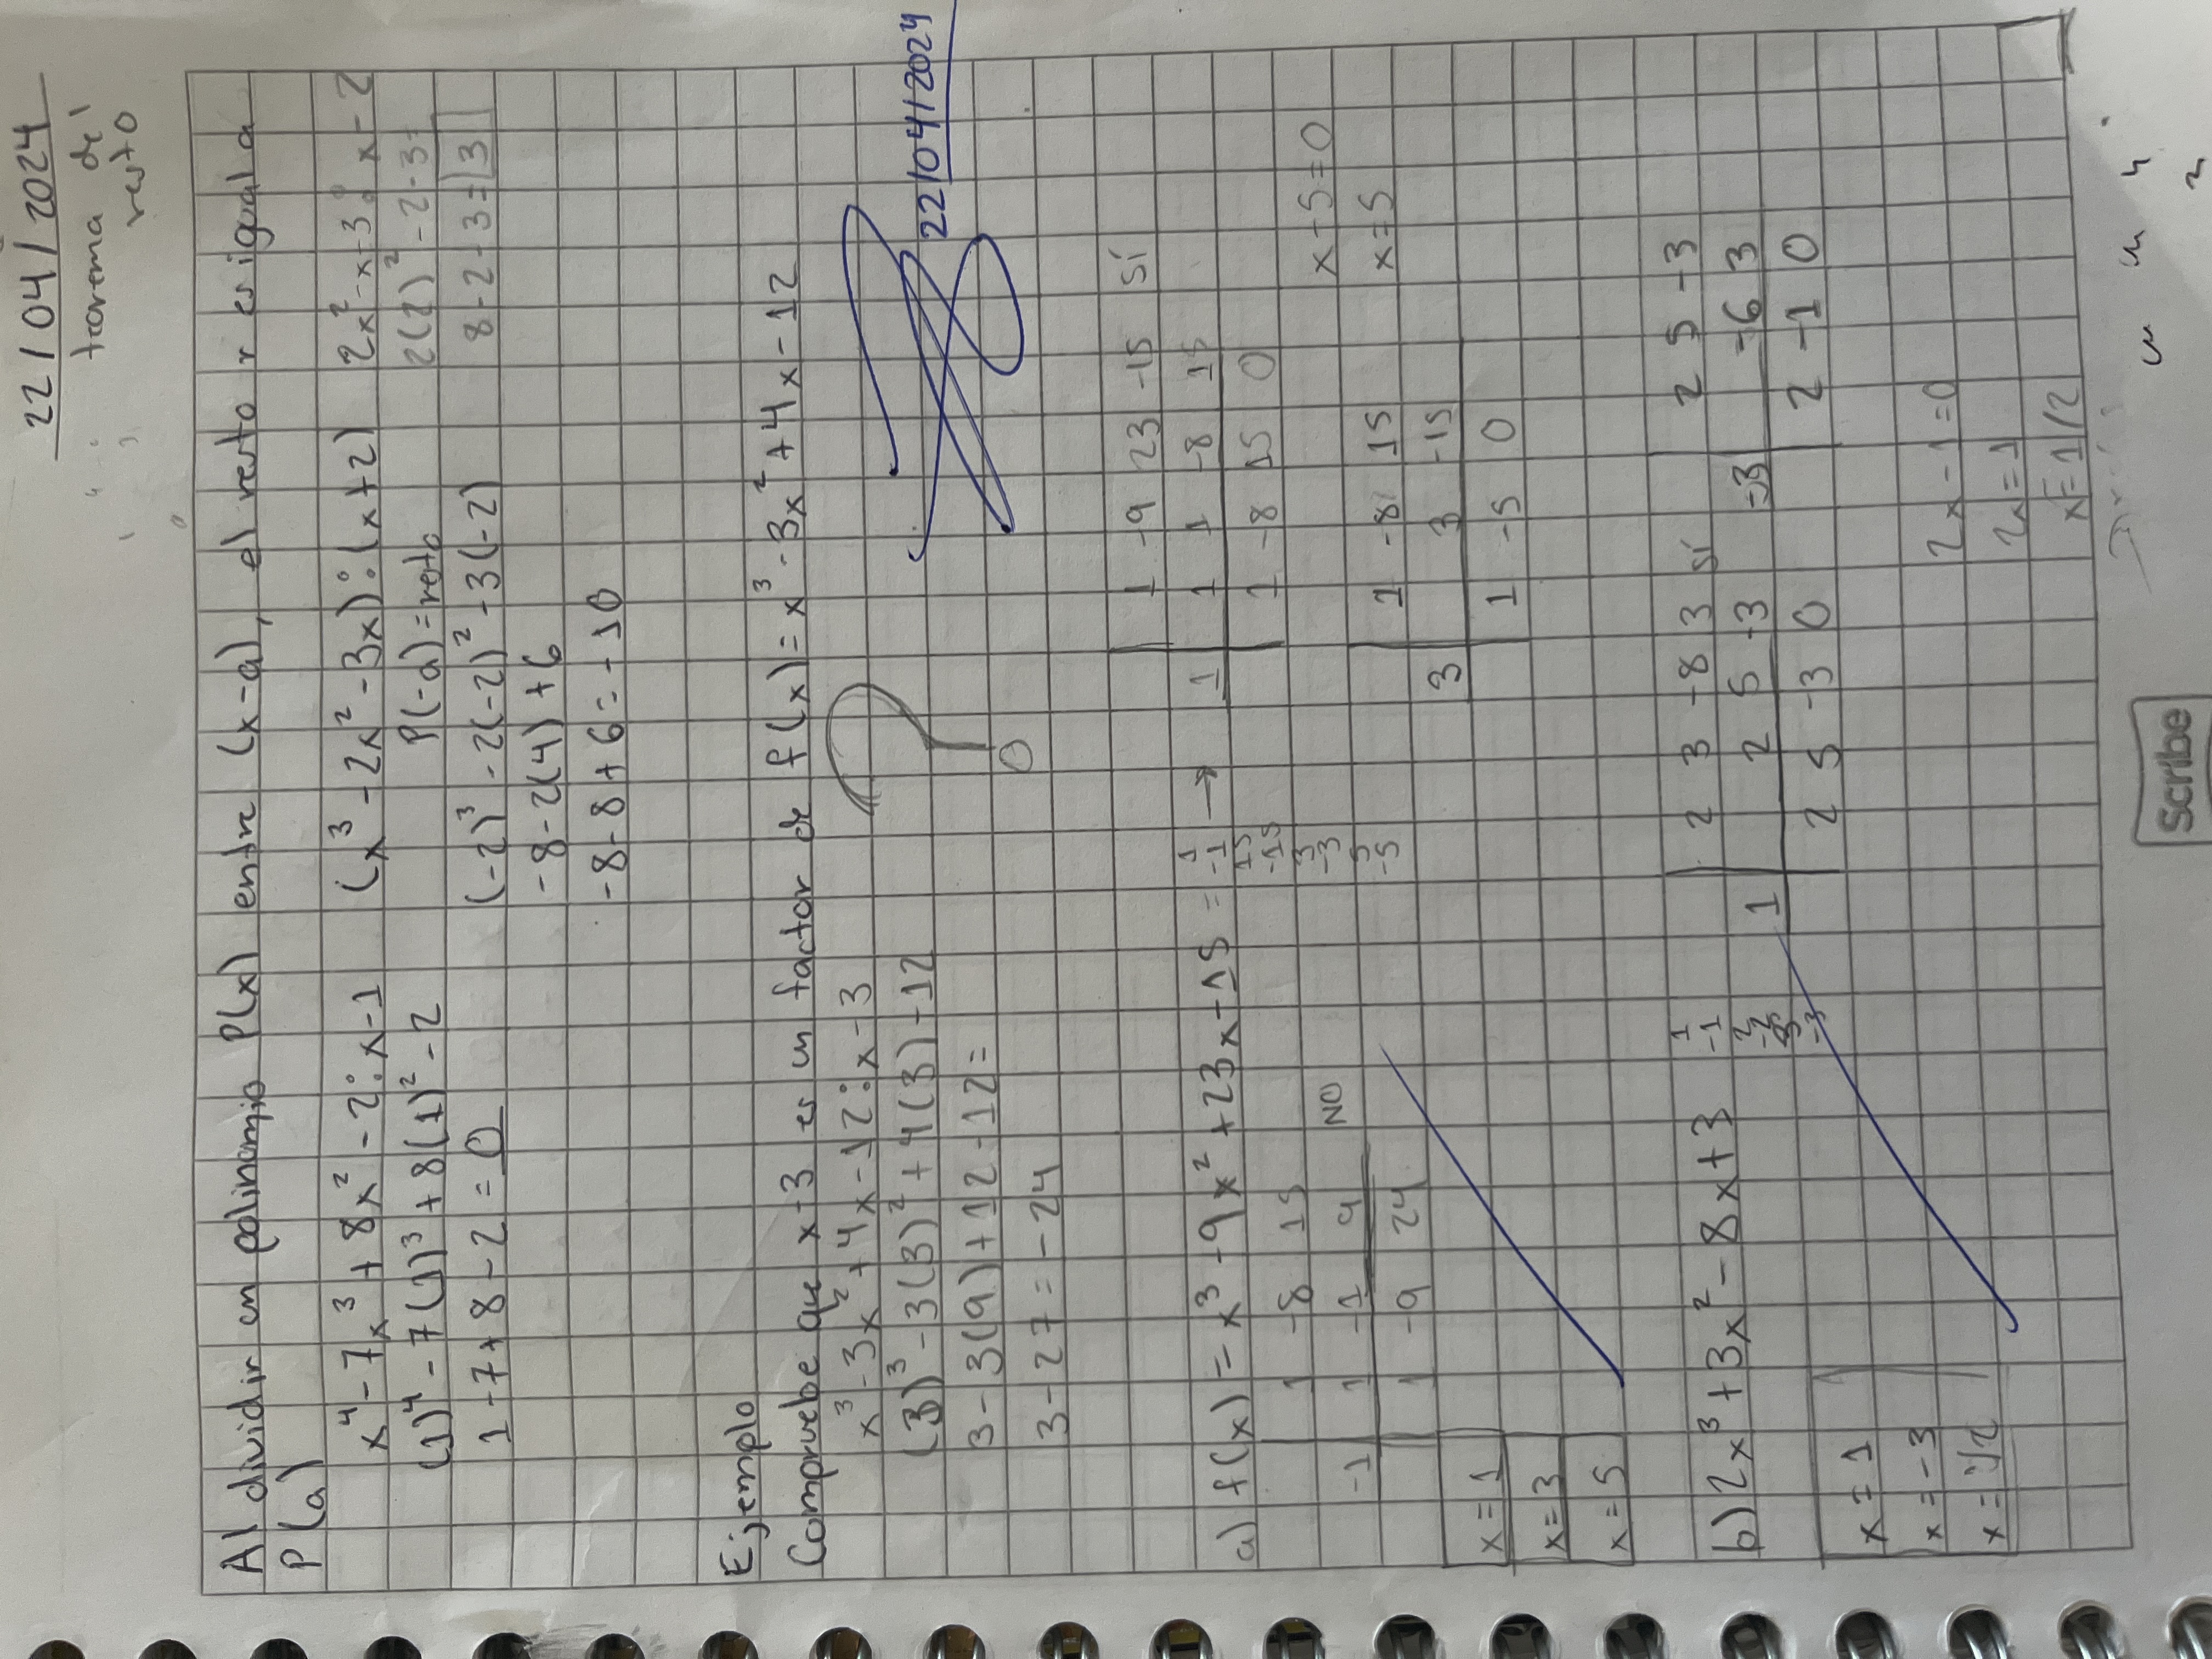 22/04/2024
teorema del
resto
Al dividir un polinomio P(x) entre (x-a), el resto r es igual a
P(a)
x⁴-7x³+8x²-2:x-1
(1)⁴-7(1)³+8(1)²-2
1-7+8-2=0
(x³-2x²-3x):(x+2)
P(-a)=resto
(-2)³-2(-2)²-3(-2)
-8-2(4)+6
-8-8+6=-10
2x²-x-3:x-2
2(2)²-2-3=
8-2-3=3
Ejemplo
Compruebe que x-3 es un factor de f(x)=x³-3x²+4x-12
x³-3x²+4x-12:x-3
(3)³-3(3)²+4(3)-12
3-3(9)+12-12=
3-27=-24
?
22/04/2024
a) f(x)=x³-9x²+23x-15=
1
-1
15
-15
3
-3
5
-5
→
1 -9 23 -15 sí
1 1 1 -8 15
1 -8 15 0
1 -8 15
-1 1 -1 9 NO
1 -9 24
1 -8 15
3 3 -15
1 -5 0
x-5=0
x=5
x=1
x=3
x=5
b) 2x³+3x²-8x+3
1
-1
3
-3
2 3 -8 3 sí
1 2 5 -3
2 5 -3 0
2 5 -3
-3 -6 3
2 -1 0
2x-1=0
2x=1
x=1/2
x=1
x=-3
x=1/2
Scribe